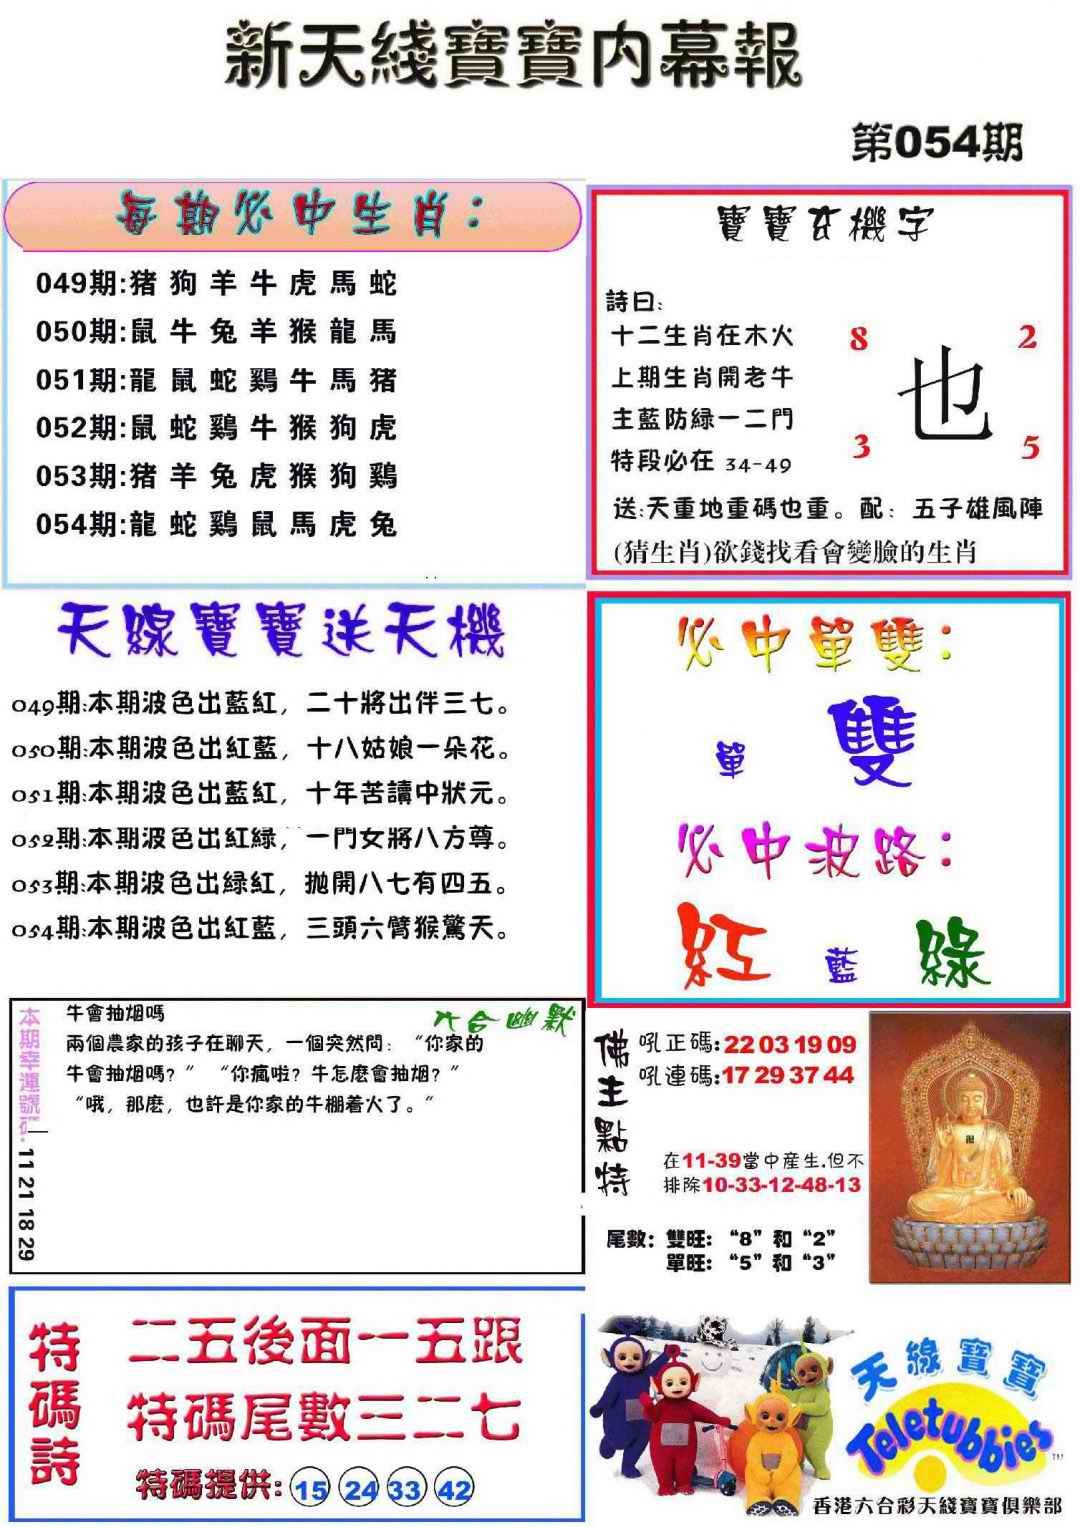 新天綫寶寶内幕報
第054期
每期必中生肖：
049期:猪狗羊牛虎馬蛇
050期:鼠牛兔羊猴龍馬
051期:龍鼠蛇鷄牛馬猪
052期:鼠蛇鷄牛猴狗虎
053期:猪羊兔虎猴狗鷄
054期:龍蛇鷄鼠馬虎兔
寶寶玄機字
詩曰:
十二生肖在木火
上期生肖開老牛
主藍防緑一二門
特段必在 34-49
8 2
也
3 5
送:天重地重碼也重。配：五子雄風陣
(猜生肖)欲錢找看會變臉的生肖
天線寶寶送天機
049期:本期波色出藍紅，二十將出伴三七。
050期:本期波色出紅藍，十八姑娘一朵花。
051期:本期波色出藍紅，十年苦讀中狀元。
052期:本期波色出紅緑，一門女將八方尊。
053期:本期波色出緑紅，拋開八七有四五。
054期:本期波色出紅藍，三頭六臂猴驚天。
必中單雙：
單 雙
必中波路：
紅 藍 綠
本期幸運號碼:
11 21 18 29
六合幽默
牛會抽烟嗎
兩個農家的孩子在聊天，一個突然問：“你家的
牛會抽烟嗎？”“你瘋啦？牛怎麽會抽烟？”
“哦，那麽，也許是你家的牛棚着火了。”
佛主點特
吼正碼:22 03 19 09
吼連碼:17 29 37 44
在11-39當中産生.但不
排除10-33-12-48-13
尾數：雙旺：“8”和“2”
單旺：“5”和“3”
特碼詩
二五後面一五跟
特碼尾數三二七
特碼提供: 15 24 33 42
天線寶寶
Teletubbies
TM
香港六合彩天綫寶寶俱樂部